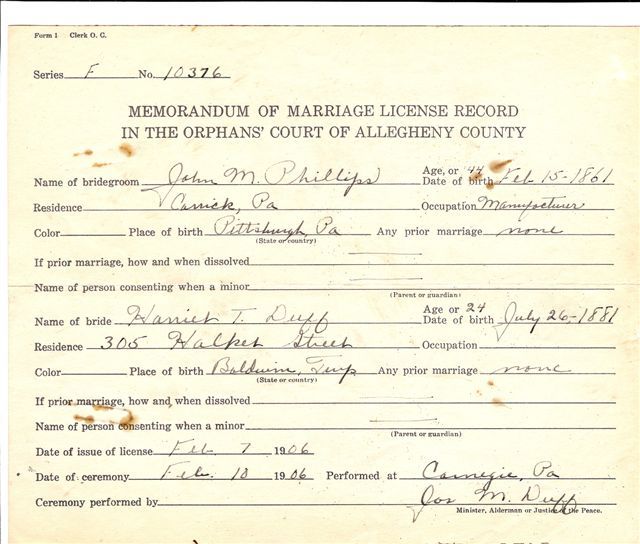 Form 1 Clerk O. C.
Series F No. 10376
MEMORANDUM OF MARRIAGE LICENSE RECORD
IN THE ORPHANS' COURT OF ALLEGHENY COUNTY
Name of bridegroom John M. Phillips Age, or 44 Date of birth Feb 15-1861
Residence Carrick, Pa Occupation Manufacturer
Color Place of birth Pittsburgh, Pa Any prior marriage none
(State or country)
If prior marriage, how and when dissolved
Name of person consenting when a minor
(Parent or guardian)
Name of bride Harriet T. Duff Age or 24 Date of birth July 26-1881
Residence 305 Halket Street Occupation
Color Place of birth Baldwin, Twp Any prior marriage none
(State or country)
If prior marriage, how and when dissolved
Name of person consenting when a minor
(Parent or guardian)
Date of issue of license Feb 7 1906
Date of ceremony Feb. 10 1906 Performed at Carnegie, Pa
Ceremony performed by Jos M. Duff
Minister, Alderman or Justice of the Peace.